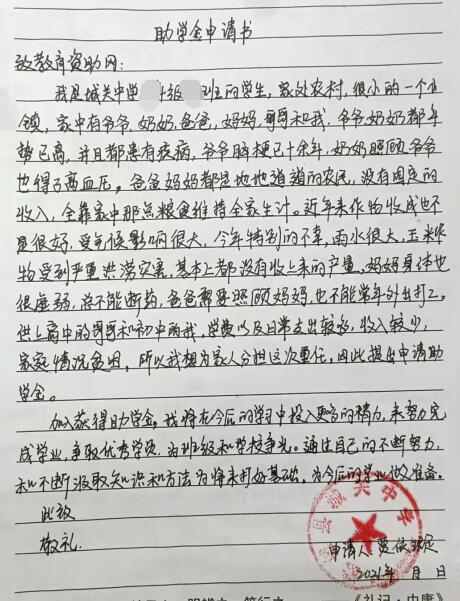 助学金申请书
致教育资助网：
我是城关中学 级 班的学生，家处农村，很小的一个小
镇，家中有爷爷，奶奶，爸爸，妈妈，哥哥和我，爷爷奶奶都年
势已高，并且都患有疾病，爷爷脑梗已十余年，奶奶照顾爷爷
也得了高血压。爸爸妈妈都是地地道道的农民，没有固定的
收入，全靠家中那点粮食维持全家生计。近年来作物收成也不
是很好，受气候影响很大，今年特别的不幸，雨水很大，玉米作
物受到严重洪涝灾害，基本上都没有收上来的产量。妈妈身体也
很虚弱，总不能断药，爸爸需要照顾妈妈，也不能常年外出打工。
供上高中的哥哥和初中的我，学费以及日常支出较多，收入较少，
家庭情况贫困，所以我想为家人分担这次重任，因此提出申请助
学金。
如获得助学金，我将在今后的学习中投入更多的精力，来努力完
成学业，争取优秀学员，为班级和学校争光。通过自己的不断努力，
和不断汲取知识和方法为将来打好基础，为今后的学业做准备。
此致
敬礼.
县城关中学
申请人
2021年 月 日
《礼记·中庸》